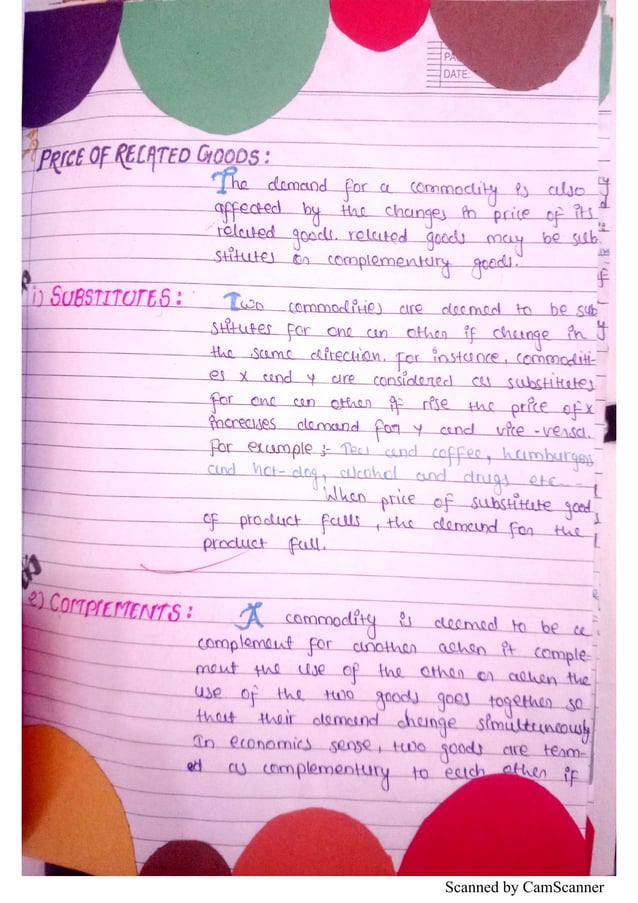 PAG
DATE:
PRICE OF RELATED GOODS:
The demand for a commodity is also
affected by the changes in price of its
related goods. related goods may be sub
stitutes or complementary goods.
i) SUBSTITUTES:
Two commodities are deemed to be sub
stitutes for one an other if change in
the same direction. for instance, commoditi-
es x and y are considered as substitutes
for one an other if rise the price of x
increases demand for y and vice-versa.
For example :- Tea and coffee, hamburgers
and hot-dog, alcohol and drugs etc.-
When price of substitute good
of product falls, the demand for the
product fall.
2) COMPLEMENTS:
A commodity is deemed to be a
complement for another when it comple-
ment the use of the other or when the
use of the two goods goes together so
that their demand change simultaneously
In economics sense, two goods are term-
ed as complementary to each other if
Scanned by CamScanner